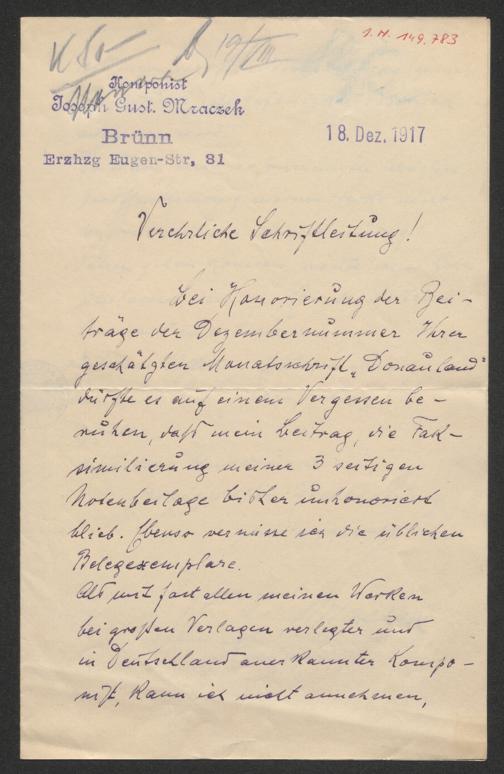 I.N. 149.783
19/XII
Komponist
Joseph Gust. Mraczek
Brünn
Erzhzg Eugen-Str, 81
18. Dez. 1917
Verehrliche Schriftleitung!
Bei Honorierung der Bei-
träge der Dezembernummer Ihrer
geschätzten Monatsschrift „Donauland"
dürfte es auf einem Vergessen be-
ruhen, daß mein Beitrag, die Fak-
similierung meiner 3 seitigen
Notenbeilage bisher unhonoriert
blieb. Ebenso vermisse ich die üblichen
Belegexemplare.
Als mit fast allen meinen Werken
bei großen Verlagen verlegter und
in Deutschland anerkannter Kompo-
nist, kann ich nicht annehmen,